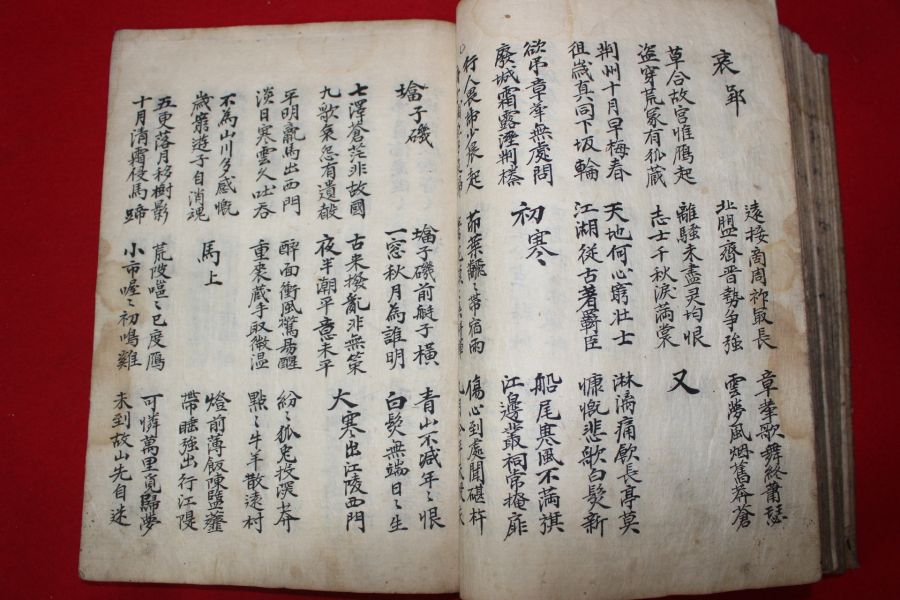 哀郢
遠接商周祚最長
北盟齊晉勢爭強
章華歌舞終蕭瑟
雲夢風烟舊莽蒼
草合故宮惟鴈起
盜穿荒冢有狐藏
離騷未盡灵均恨
志士千秋淚滿裳
又
荆州十月早梅春
徂歲真同下坂輪
天地何心窮壯士
江湖從古著羈臣
淋漓痛飲長亭莫
慷慨悲歌白髮新
欲吊章華無處問
廢城霜露溼荆榛
初寒
船尾寒風不滿旗
江邊叢祠常掩扉
行人畏
少晨起
茆葉翻〻帶宿雨
傷心到處聞碪杵
塔子磯
塔子磯前艇子橫
一窓秋月為誰明
青山不減年〻恨
白髮無端日〻生
七澤蒼茫非故國
九歌哀怨有遺聲
古來撥亂非無策
夜半潮平意未平
大寒出江陵西門
平明羸馬出西門
淡日寒雲久吐吞
醉面衝風驚易醒
重裘藏手取微温
紛〻狐兔投深莽
點〻牛羊散遠村
不為山川多感慨
歲窮遊子自消魂
馬上
燈前薄飯陳鹽虀
帶睡強出行江隄
五更落月移樹影
十月清霜侵馬蹄
荒陂嗈〻已度鴈
小市喔〻初鳴雞
可憐萬里覓歸夢
未到故山先自迷